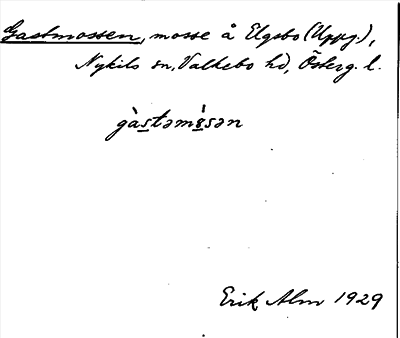 Gastmossen, mosse å Elgsbo (Uppg.),
Nykils sn, Valkebo hd, Österg. l.
gàstəmɷ̀sən
Erik Alm 1929